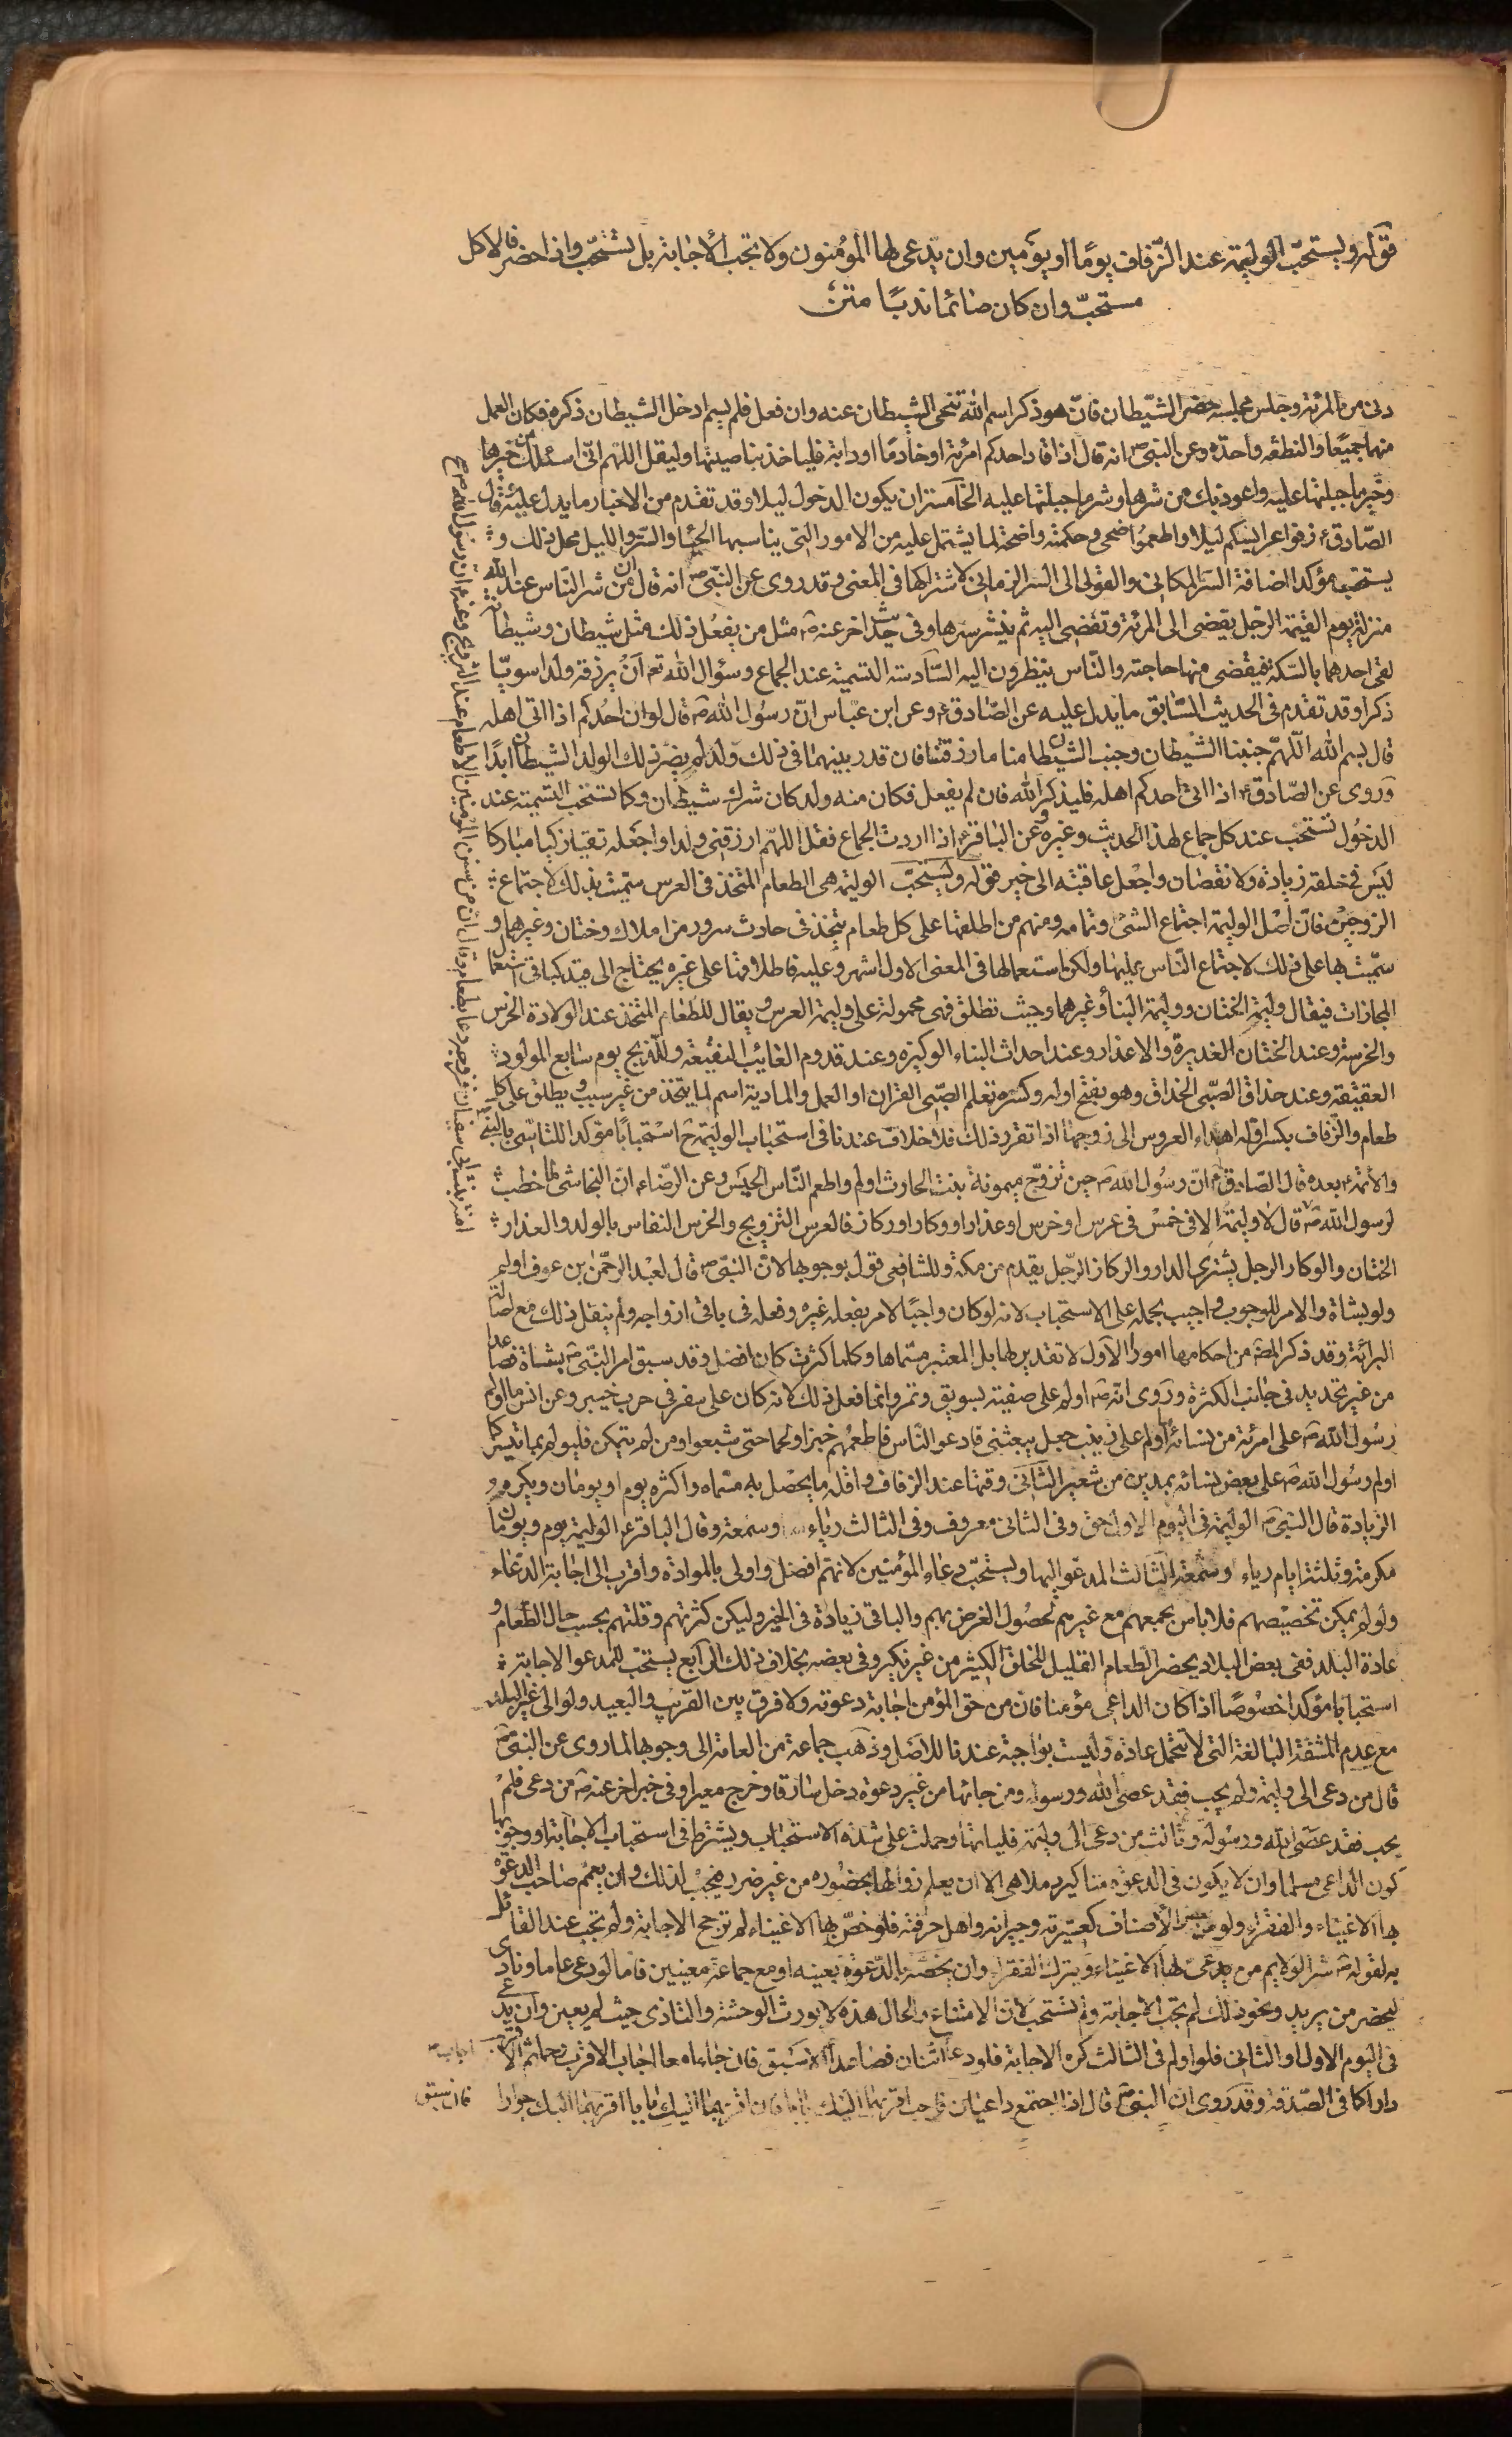 قوله ويستحبّ الوليمة عند الزّفاف يومًا او يومين وان يدعى لها المؤمنون ولا تجب الأجابة بل تستحبّ واذا حضر فالاكل
مستحبّ وان كان صائما ندبًا متن
دنى من المرئة وجلس مجلسه حضر الشيّطان فانّ هو ذكر اسم الله تنحى الشيطان عنه وان فعل فلم يسم ادخل الشيطان ذكره فكان العمل
منهما جميعًا والنطفه واحدة وعن النبىّ ص انه قال اذا افاد احدكم امرئة او خادمًا او دابة فلياخذ بناصيتها وليقل اللّهم انّى اسئلك من خيرها
وخير ما جبلتها عليه واعوذ بك من شرها وشر ما جبلتها عليه الخامسة ان يكون الدخول ليلا وقد تقدم من الاخبار ما يدل عليه وقال
الصّادق ع زفوا عرائسكم ليلا واطعموا ضحى وحكمته واضحة لما يشتمل عليه من الامور التى يناسبها الحيا والستر والليل محل ذلك و
يستحب مؤكدا اضافة الستر المكانى والقولى الى الستر الزمانى لاشتراكها فى المعنى وقد روى عن النبىّ ص انه قال ان من شر النّاس عند الله
منزلة يوم القيمة الرّجل يفضى الى المرئة وتفضى اليه ثم ينشر سرها وفى حديث اخر عنه ص مثل من يفعل ذلك مثل شيطان وشيطانة
لقى احدهما بالسّكة فيقضى منها حاجته والنّاس ينظرون اليه السّادسة التسمية عند الجماع وسؤال الله تع ان يرزقه ولدا سويّا
ذكرا وقد تقدم فى الحديث السّابق ما يدل عليه عن الصّادق ع وعن ابن عبّاس انّ رسول الله ص قال لو ان احدكم اذا اتى اهله
قال بسم الله اللّهمّ جنبنا الشّيطان وجنب الشيطان ما رزقتنا فان قدر بينهما فى ذلك ولد لم يضر ذلك الولد الشيطان ابدًا
وروى عن الصّادق ع اذا اتى احدكم اهله فليذكر الله فان لم يفعل فكان منه ولد كان شرك شيطان وكما تستحب التسمية عند
الدخول تستحب عند كل جماع لهذا الحديث وغيره وعن الباقر ع اذا اردت الجماع فقل اللهّم ارزقنى ولدا واجعله تقيا زكيا مباركا
ليس فى خلقه زيادة ولا نقصان واجعل عاقبته الى خير قوله ويستحبّ الوليمة هى الطعام المتخذ فى العرس سميت بذلك لاجتماع
الزوجين فانّ اصل الوليمة اجتماع الشئ وتمامه ومنهم من اطلقها على كل طعام يتخذ فى حادث سرور من املاك وختان وغيرهما و
سمّيت بها على ذلك لاجتماع النّاس عليها ولكن استعمالها فى المعنى الاول اشهر وعليه فاطلاقها على غيره يحتاج الى قيد كباقى استعمال
المجازات فيقال وليمة الختان ووليمة البنأ وغيرهما وحيث تطلق فهى محمولة على وليمة العرس ويقال للطّعام المتخذ عند الولادة الخرس
والخرسة وعند الختان العذيرة والاعذار وعند احداث البناء الوكيرة وعند قدوم الغائب النقيعة وللذّبح يوم سابع المولود
العقيقة وعند حذاق الصّبى الحذاق وهو بفتح اوله وكسره تعلم الصّبى القران او العمل والمادبة اسم لما يتخذ من غير سبب ويطلق على كل
طعام والزّفاف بكسر اوله اهداء العروس الى زوجها اذا تقرر ذلك فلا خلاف عندنا فى استحباب الوليمة ح استحبابًا مؤكدا للتاسّى بالنبىّ
والائمة بعده قال الصّادق ع انّ رسول الله ص حين تزوّج ميمونة بنت الحارث اولم واطعم النّاس الحيس وعن الرّضا ع انّ النجاشى لما خطب
لرسول الله ص قال لا وليمة الا فى خمس فى عرس او خرس او عذار او وكار او ركاز فالعرس التزويج والخرس النفاس بالولد والعذار
الختان والوكار الرجل يشترى الدار والركاز الرّجل يقدم من مكة وللشافعى قول بوجوبها لانّ النبىّ ص قال لعبد الرحمّن بن عوف اولم
ولو بشاة والامر للوجوب واجيب بحمله على الاستحباب لانه لو كان واجبًا لامر بفعله غيره وفعله فى باقى ازواجه ولم ينقل ذلك مع اصالة
البرائة وقد ذكر المص من احكامها امورا الاول لا تقدير لها بل المعتبر مسّماها وكلما كثرت كان افضل وقد سبق امر النّبى ص بشاة فصاعدا
من غير تحديد فى جانب الكثرة وروى انّه ص اولم على صفية بسويق وتمر وانما فعل ذلك لانه كان على سفر فى حرب خيبر وعن انس ما اولم
رسول الله ص على امرئة من نسائه ما اولم على زينب جعل يبعثنى فادعو النّاس فاطعمهم خبزا ولحما حتى شبعوا ومن لم يتمكن فليولم بما تيسر كما
اولم رسول الله ص على بعض نسائه بمدين من شعير الثّانى وقتها عند الزفاف واقله ما يحصل به مسّماه واكثره يوم او يومان ويكره
الزيادة قال النبىّ ص الوليمة فى اليوم الاول حق وفى الثانى معروف وفى الثالث رياء وسمعة وقال الباقر ع الوليمة يوم ويومان
مكرمة وثلثة ايام رياء وسمعة الثالث المدعو اليها ويستحبّ دعاء المؤمنين لانهّم افضل واولى بالموادة واقرب الى اجابة الدعاء
ولو لم يمكن تخصيصهم فلا باس بجمعهم مع غيرهم لحصول الغرض بهم والباقى زيادة فى الخير وليكن كثرتهم وقلتهم بحسب حال الطّعام و
عادة البلد ففى بعض البلاد يحضر الطعام القليل للخلق الكثير من غير نكير وفى بعضه بخلاف ذلك الرّابع يستحب للمدعو الاجابة
استحبابا مؤكدا خصوصًا اذا كان الداعى مؤمنا فان من حق المؤمن اجابة دعوته ولا فرق بين القريب والبعيد ولو الى غير البلد
مع عدم المشقة البالغة التى لا تتحمل عادة وليست بواجبة عندنا للاصل وذهب جماعة من العامة الى وجوبها لما روى عن النبىّ ص
قال من دعى الى وليمة ولم يجب فقد عصى الله ورسوله ومن جائها من غير دعوة دخل سارقا وخرج مغيرا وفى خبر اخر عنه ص من دعى فلم
يجب فقد عصى الله ورسوله وثالث من دعى الى وليمة فلياتها وحملت على شدة الاستحباب ويشترط فى استحباب الاجابة او وجوبها
كون الداعى مسلما وان لا يكون فى الدعوة مناكير وملاهى الا ان يعلم زوالها بحضوره من غير ضرر فيجب لذلك وان يعم صاحب الدعوة
بها الاغنياء والفقراء ولو من بعض الأصناف كعشيرته وجيرانه واهل حرفته فلو خصّ بها الاغنياء لم ترجح الاجابة ولم تجب عند القائل
به لقوله ص شر الولايم من يدعى لها الاغنياء ويترك الفقراء وان يخصّه بالدّعوة بعينه او مع جماعة معينين فاما لو دعى عاما ونادى
ليحضر من يريد ونحو ذلك لم تجب الاجابة ولم تستحب لانّ الامتناع والحال هذه لا يورث الوحشة والتاذى حيث لم يعين وان يدعى
فى اليوم الاول او الثانى فلو اولم فى الثالث كره الاجابة فلو دعاه اثنان فصاعدا اجاب الاسبق فان جاءاه معا اجاب الاقرب رحما ثم الاقرب
دارا كما فى الصّدقة وقد روى ان النبىّ ص قال اذا اجتمع داعيان فاجب اقربهما اليك بابا فان اقربهما اليك بابا اقربهما اليك جوارا
فان سبق